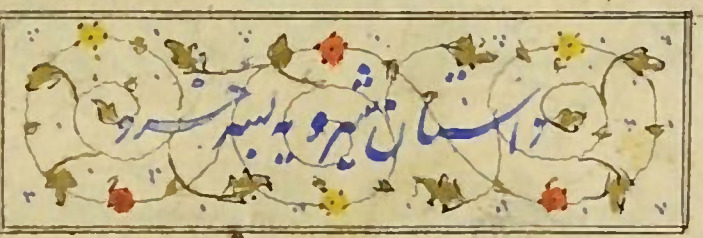 داستان شیرویه پسر خسرو